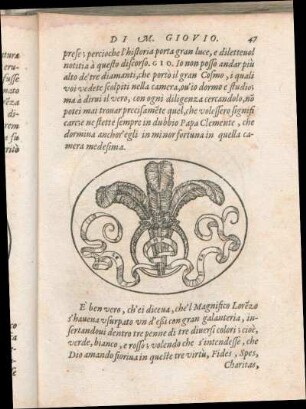 DI M. GIOVIO. 47
prese: percioche l'historia porta gran luce, e diletteuol
notitia à questo discorso. GIO. Io non posso andar più
alto de' tre diamanti, che portò il gran Cosmo, i quali
voi vedete scolpiti nella camera, ou'io dormo e studio:
ma à dirui il vero, con ogni diligenza cercandolo, nō
potei mai trouar precisamēte quel, che volessero signifi
care ne stette sempre in dubbio Papa Clemente, che
dormiua anchor'egli in minor fortuna in quella ca
mera medesima.
E ben vero, ch'ei diceua, che'l Magnifico Lorēzo
s'haueua vsurpato vn d'essi con gran galanteria, in-
sertandoui dentro tre penne di tre diuersi colori: cioè,
verde, bianco, e rosso: volendo che s'intendesse, che
Dio amando fioriua in queste tre virtù, Fides, Spes,
Charitas,